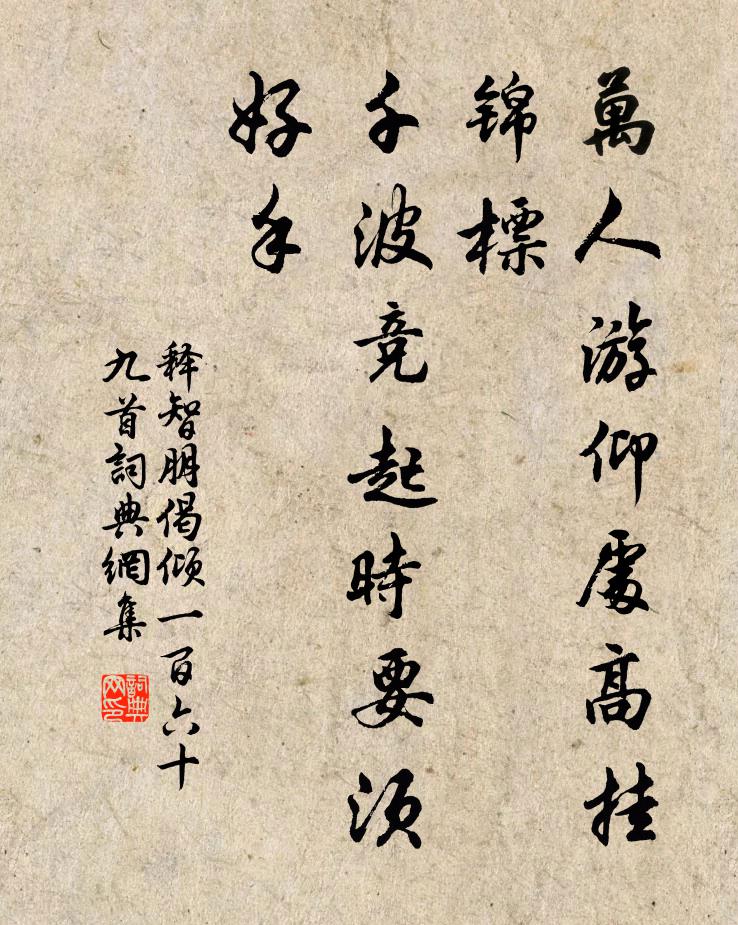 萬人游仰處高挂
锦標
千波竞起時要须
好手
释智朋偈倾一百六十
九首詞典網集
詞典
网印